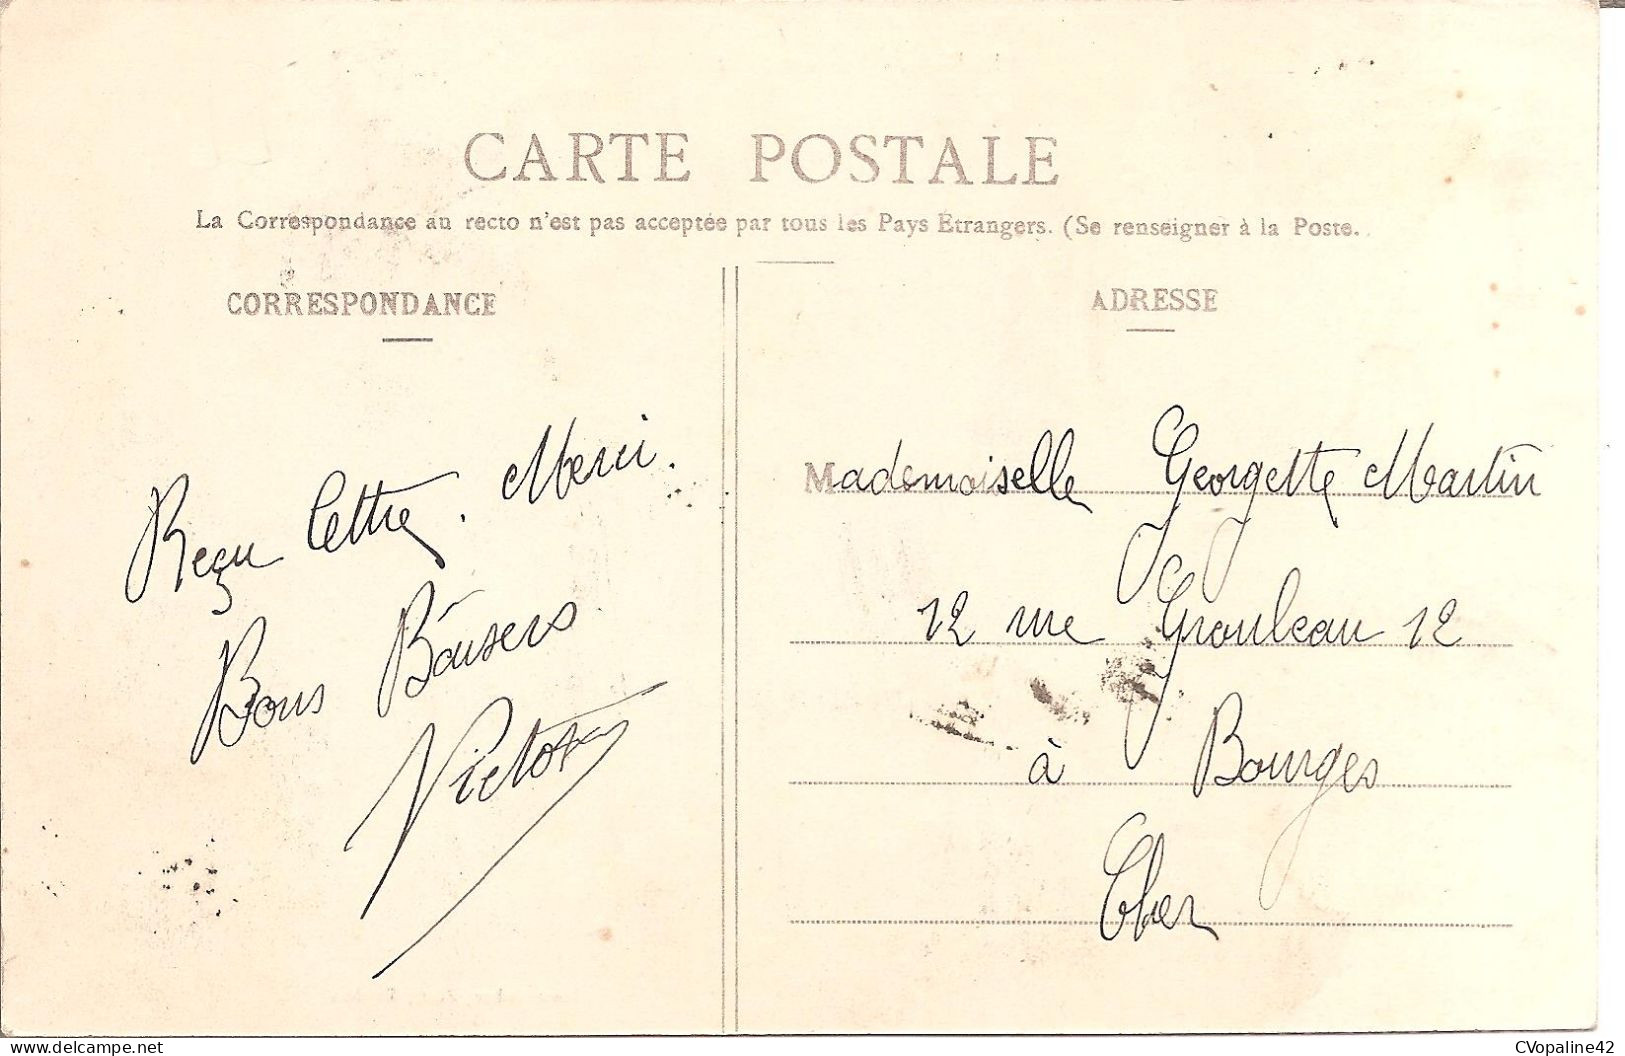 CARTE POSTALE
La Correspondance au recto n'est pas acceptée par tous les Pays Etrangers. (Se renseigner à la Poste.
CORRESPONDANCE
Reçu lettre. Merci.
Bons Baisers
Victor
ADRESSE
Mademoiselle Georgette Martin
12 rue Grouleau 12
à Bourges
Cher
www.delcampe.net
CVopaline42